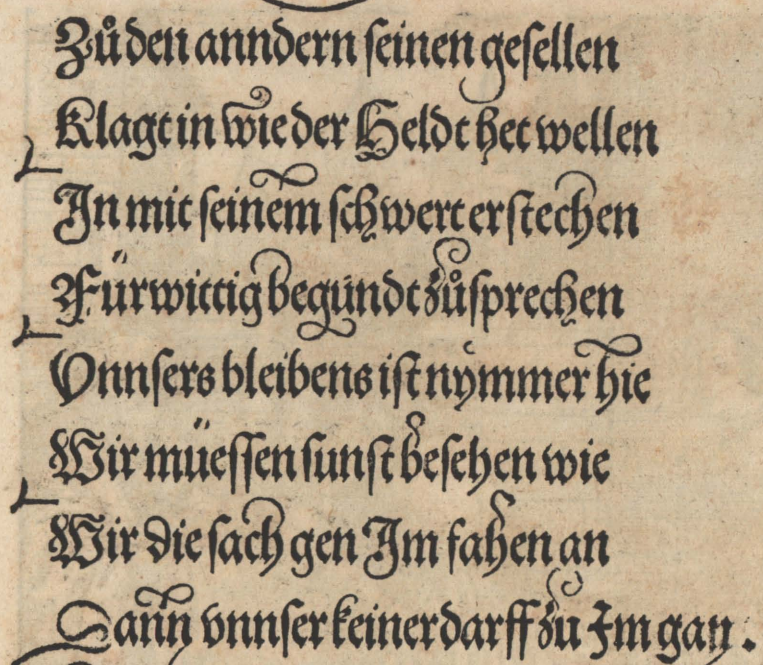 Zůden anndern seinen gesellen
Klagt in wie der Heldt het wellen
In mit seinem schwert erstechen
Fürwittig begundt zůsprechen
Vnnsers bleibens ist nÿmmer hie
Wir müessen sunst besehen wie
Wir die sach gen Im fahen an
Dann vnnser keiner darff zu Im gan.